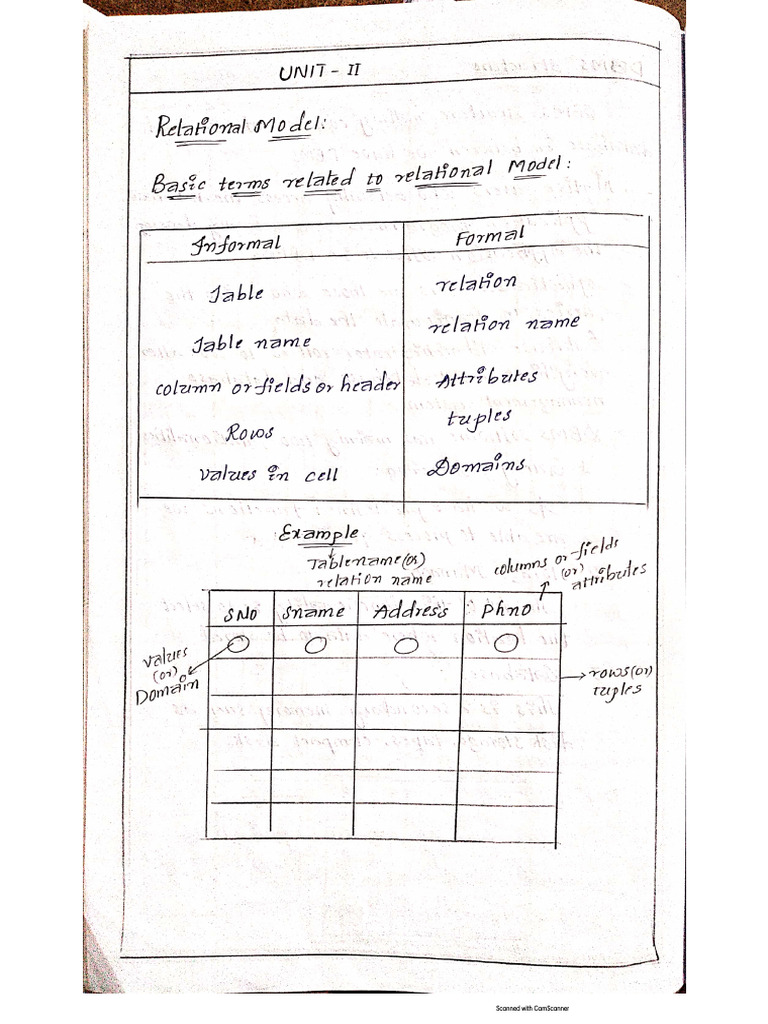 UNIT - II
Relational Model:
Basic terms related to relational Model:
Informal Formal
Table relation
Table name relation name
column or fields or header Attributes
Rows tuples
values in cell Domains
Example
Tablename (or)
relation name
columns or fields
(or)
attributes
SNO Sname Address Phno
values
(or)
Domain
rows (or)
tuples
Scanned with CamScanner